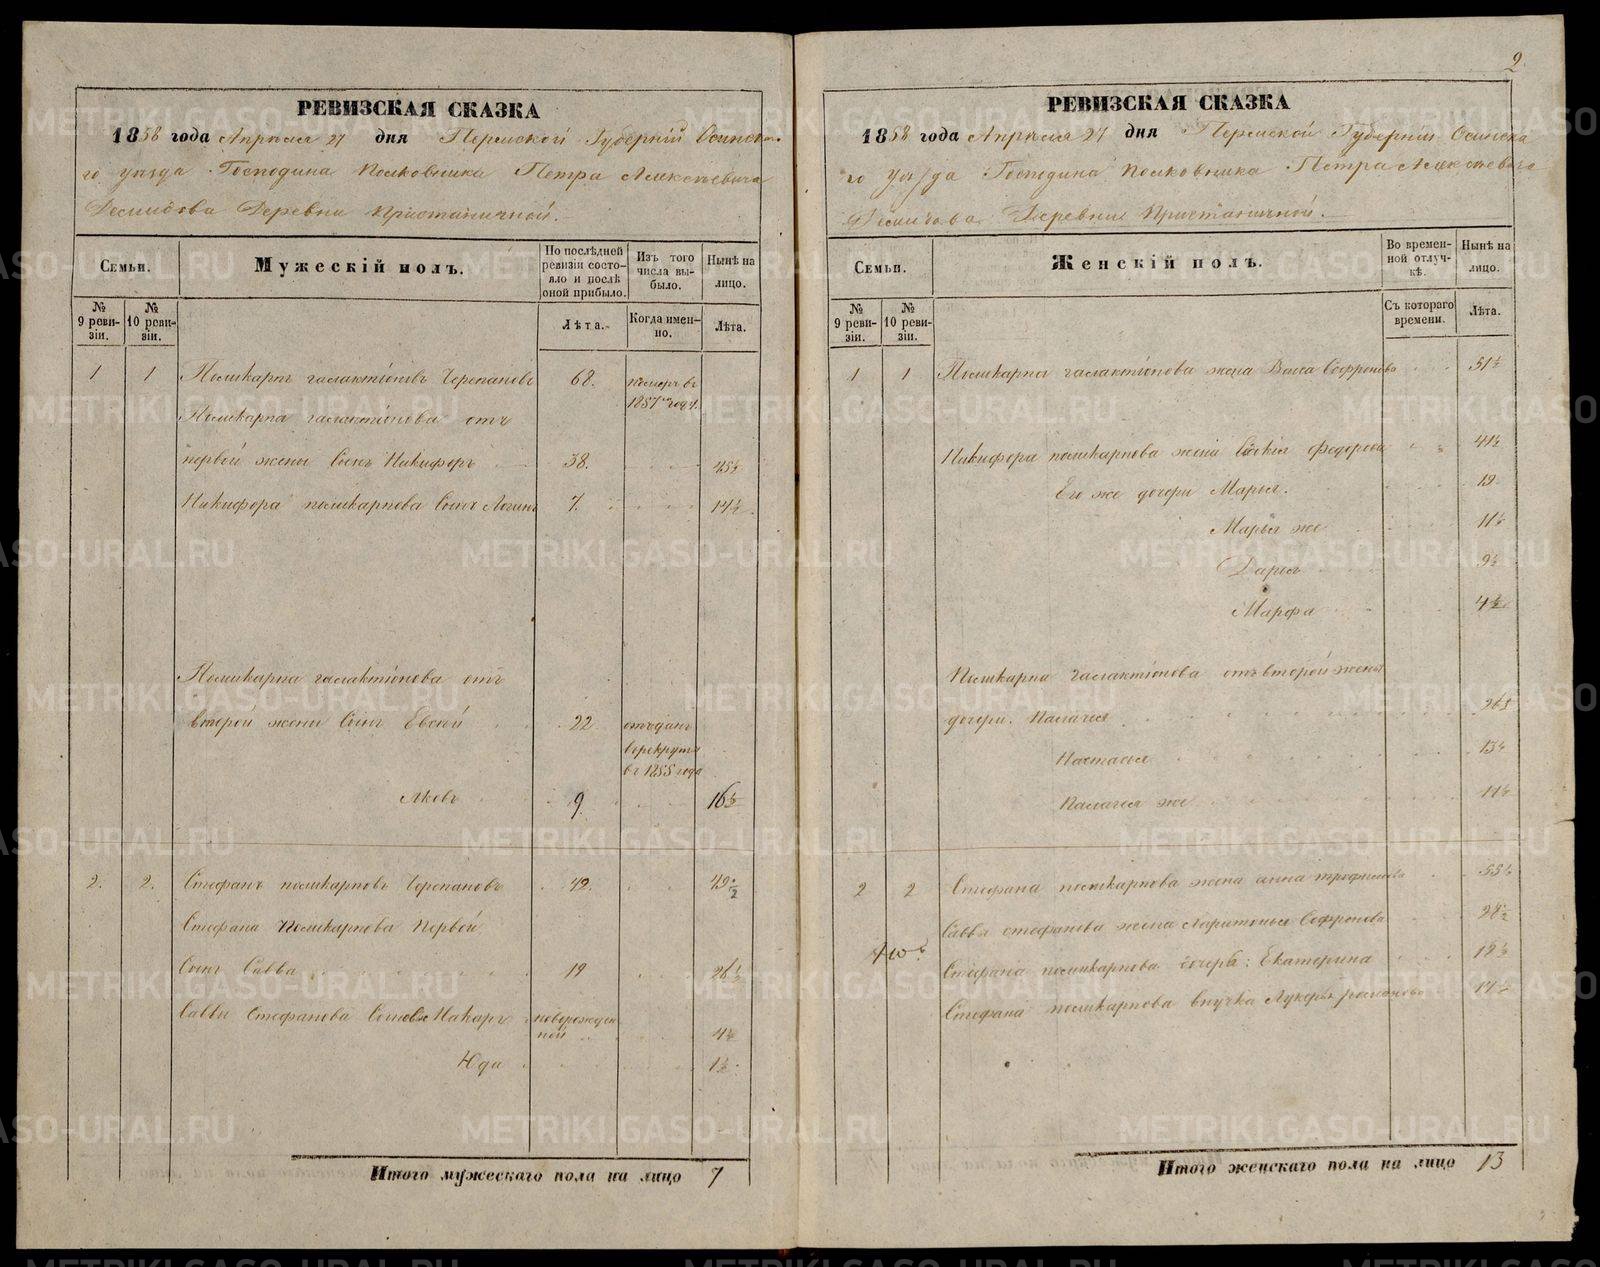 2
РЕВИЗСКАЯ СКАЗКА
1858 года Апреля 27 дня Пермской Губернии Осинска-
го уезда Господина Полковника Петра Алексеевича
Демидова Деревни Пристаничной.
Семьи.
Мужескій полъ.
По послѣдней ревизіи состояло и послѣ оной прибыло.
Изъ того числа выбыло.
Нынѣ на лицо.
№ 9 ревизіи.
№ 10 ревизіи.
Лѣта.
Когда именно.
Лѣта.
1 1 Поликарпъ галактіоновъ Черепановъ 68. померъ въ
1857 году.
Поликарпа галактіонова отъ
первой жены Сынъ Никифоръ 38. 45½
Никифора поликарпова Сынъ Логинъ 7. 14½
Поликарпа галактіонова отъ
второй жены Сынъ Евсей 22 отъданъ
в рекруты
въ 1855 года
Яковъ 9 16½
2. 2. Стефанъ поликарповъ Черепановъ 42. 49½
Стефана Поликарпова Первой
Сынъ Савва 19 26½
Саввы Стефанова Сыновья Макаръ новорожден
ной 4½
Юда 1½
Итого мужескаго пола на лицо 7
РЕВИЗСКАЯ СКАЗКА
1858 года Апреля 27 дня Пермской Губернии Осинска
го уезда Господина Полковника Петра Алексеевича
Демидова Деревни Пристаничной.
Семьи.
Женскій полъ.
Во временной отлучкѣ.
Нынѣ на лицо.
№ 9 ревизіи.
№ 10 ревизіи.
Съ котораго времени.
Лѣта.
1 1 Поликарпа галактіонова жена Васса Софронова 51½
Никифора поликарпова жена федорова 41½
Его же дочери Марья. 19
Марья же 11½
Дарья 9½
Марфа 4½
Поликарпа галактіонова отъ второй жены
дочери. Палагея 26½
Настасья 13½
Палагея же 11½
2 2 Стефана поликарпова жена анна трофимова 55½
Саввы стефанова жена Харитонья Софронова 28½
Стефана поликарпова дочерь: Екатерина 18½
Стефана поликарпова внучка Лукерья 17½
Итого женскаго пола на лицо 13
METRIKI.GASO-URAL.RU